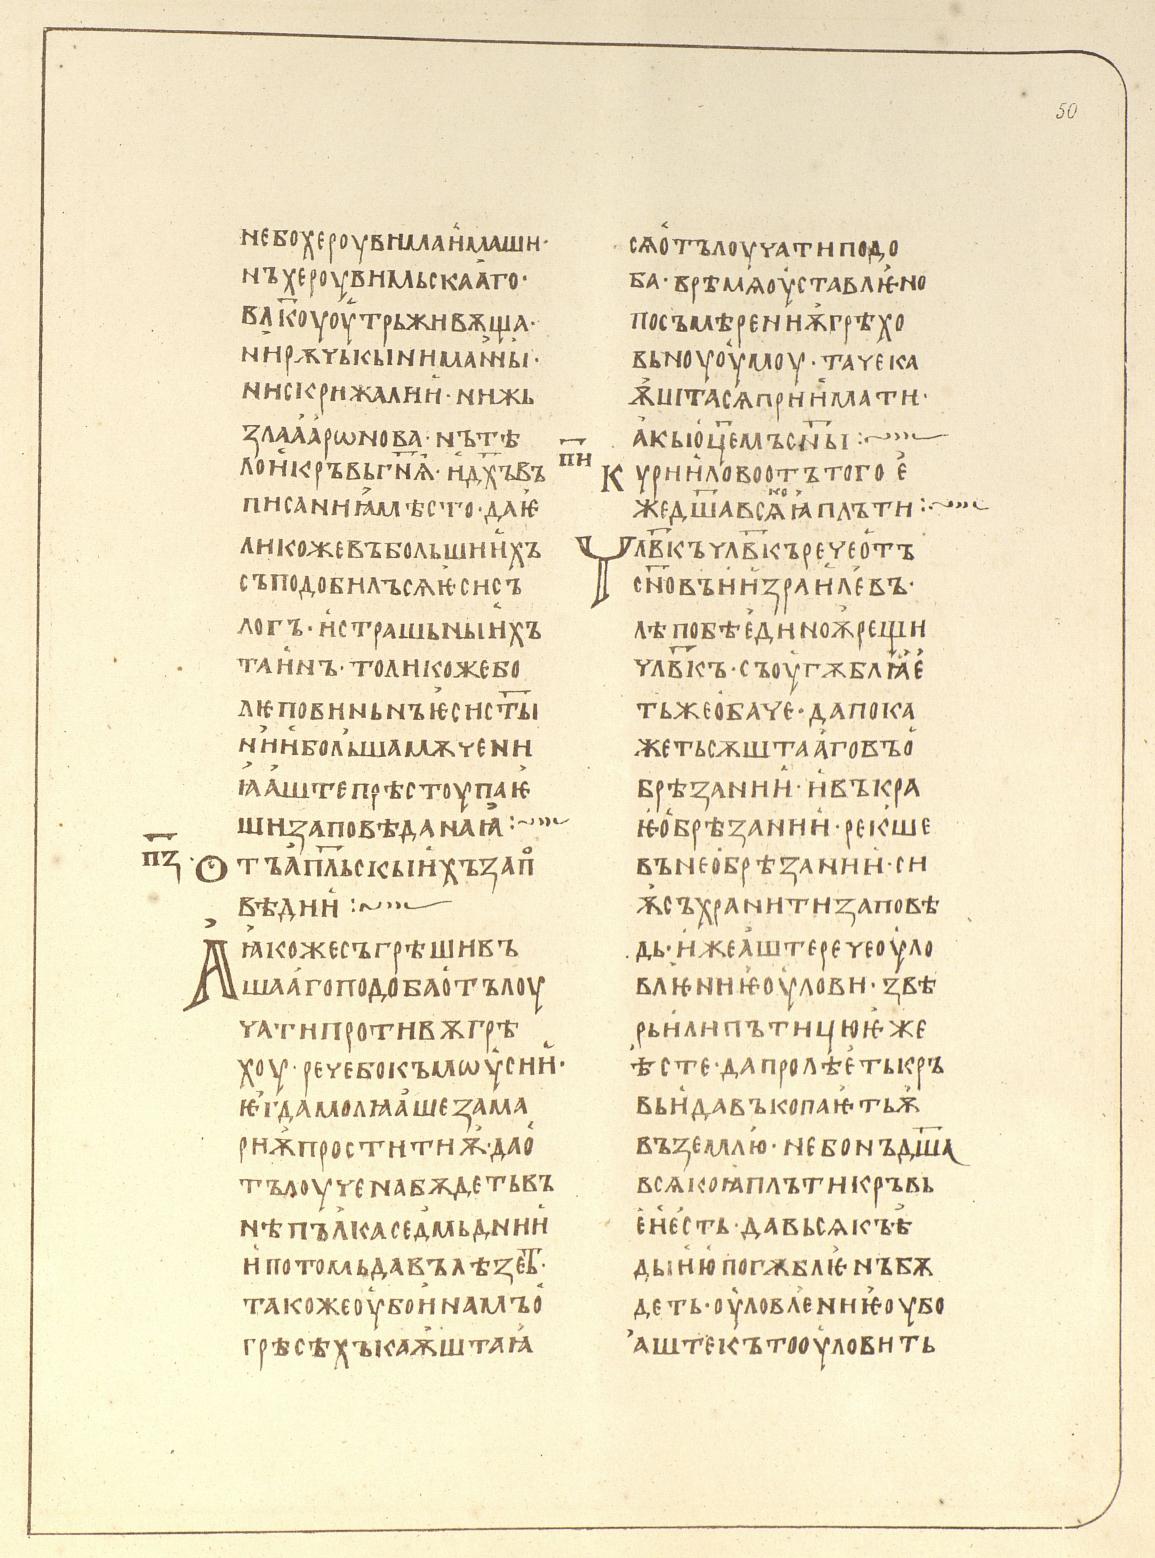 50
небохероувимлаи҆маши·
нъхероувимьскаа҆го·
влⷦ҇коуоу҆трьжнвѫща·
ни҆рѫчькынима҆нн҆ы·
нискрижални҆и҆·нижь
зла҆а҆рѡнова·нътѣ
лои҆кръвьгн҃ѧ·и҆дх҃ъвъ
писании҆ꙗмѣсто·даѥ҆
ликожевъбольшии҆хъ
съподобилъсѧѥсисъ҆
логъ·и҆страшьныи҆хъ
таи҆нъ·толикожебо
лѥповиньнъѥ҆сист҃ы
ни҆и҆большамѫчени
ꙗ҆а҆штепрѣстоупаѥ҆
шизаповѣданаꙗ҆:~
п҃з отъа҆п҃льскыи҆хъзапо҆
вѣднии҆:~
А҆ꙗкожесъгрѣшивъ
шаа҆гоподобао҆тълоу
чатипротивѫгрѣ
хоу·речебокъмѡу҆сии҆·
ѥ҆гдамолꙗа҆шезама
риѭ҆проститиѭ҆·дао҆
тълоученабѫдетьвъ
нѣпъл҆каседмьднии҆
и҆потомьдавълѣзет҃ь·
такожеоу҆бои҆намъо҆
грѣсѣхъкаѭ҆штаꙗ҆
сѧо҆тълоучатиподо
ба·врѣмѧ҆оу҆ставлѥ҆но
посъмѣрениѭ҆грѣхо
вьноуоу҆моу·тачека
ѭ҆штасѧприи҆мати·
а҆кыо҆ц҃емъсн҃ы:~
п҃и Курии҆ловоотътогоє҆
жедш҃авсѧ҆коꙗ҆плъти:~
Чл҃вкъчл҃вкъречео҆тъ
сн҃овъи҆и҆зраи҆ле҆въ·
лѣпобѣє҆диноѭ҆рещи
чл҃вкъ·съоу҆гѫблꙗ҆є҆
тьжео҆баче·дапока
жетьсѫштаа҆говъо҆
брѣзании҆·и҆въкра
ѥо҆брѣзании҆·рекъ҆ше
вънео҆брѣзании҆·си
ѭ҆съхранитизаповѣ
дь·и҆жеа҆штеречеоу҆ло
влѥ҆ниѥоу҆лови·звѣ
рьи҆липътицюѥ҆же
ѣ҆сте·дапролѣє҆тькръ
вьи҆давъкопаѥ҆тьѭ҆
въземлю҆·небонъдш҃а
всѧкоꙗплътикръвь
є҆и҆є҆сть·давьсѧкъѣ҆
дыи҆ю҆погѫблѥ҆нъбѫ
деть·оу҆ловле҆ниѥ҆оубо
а҆штекътооу҆ловить